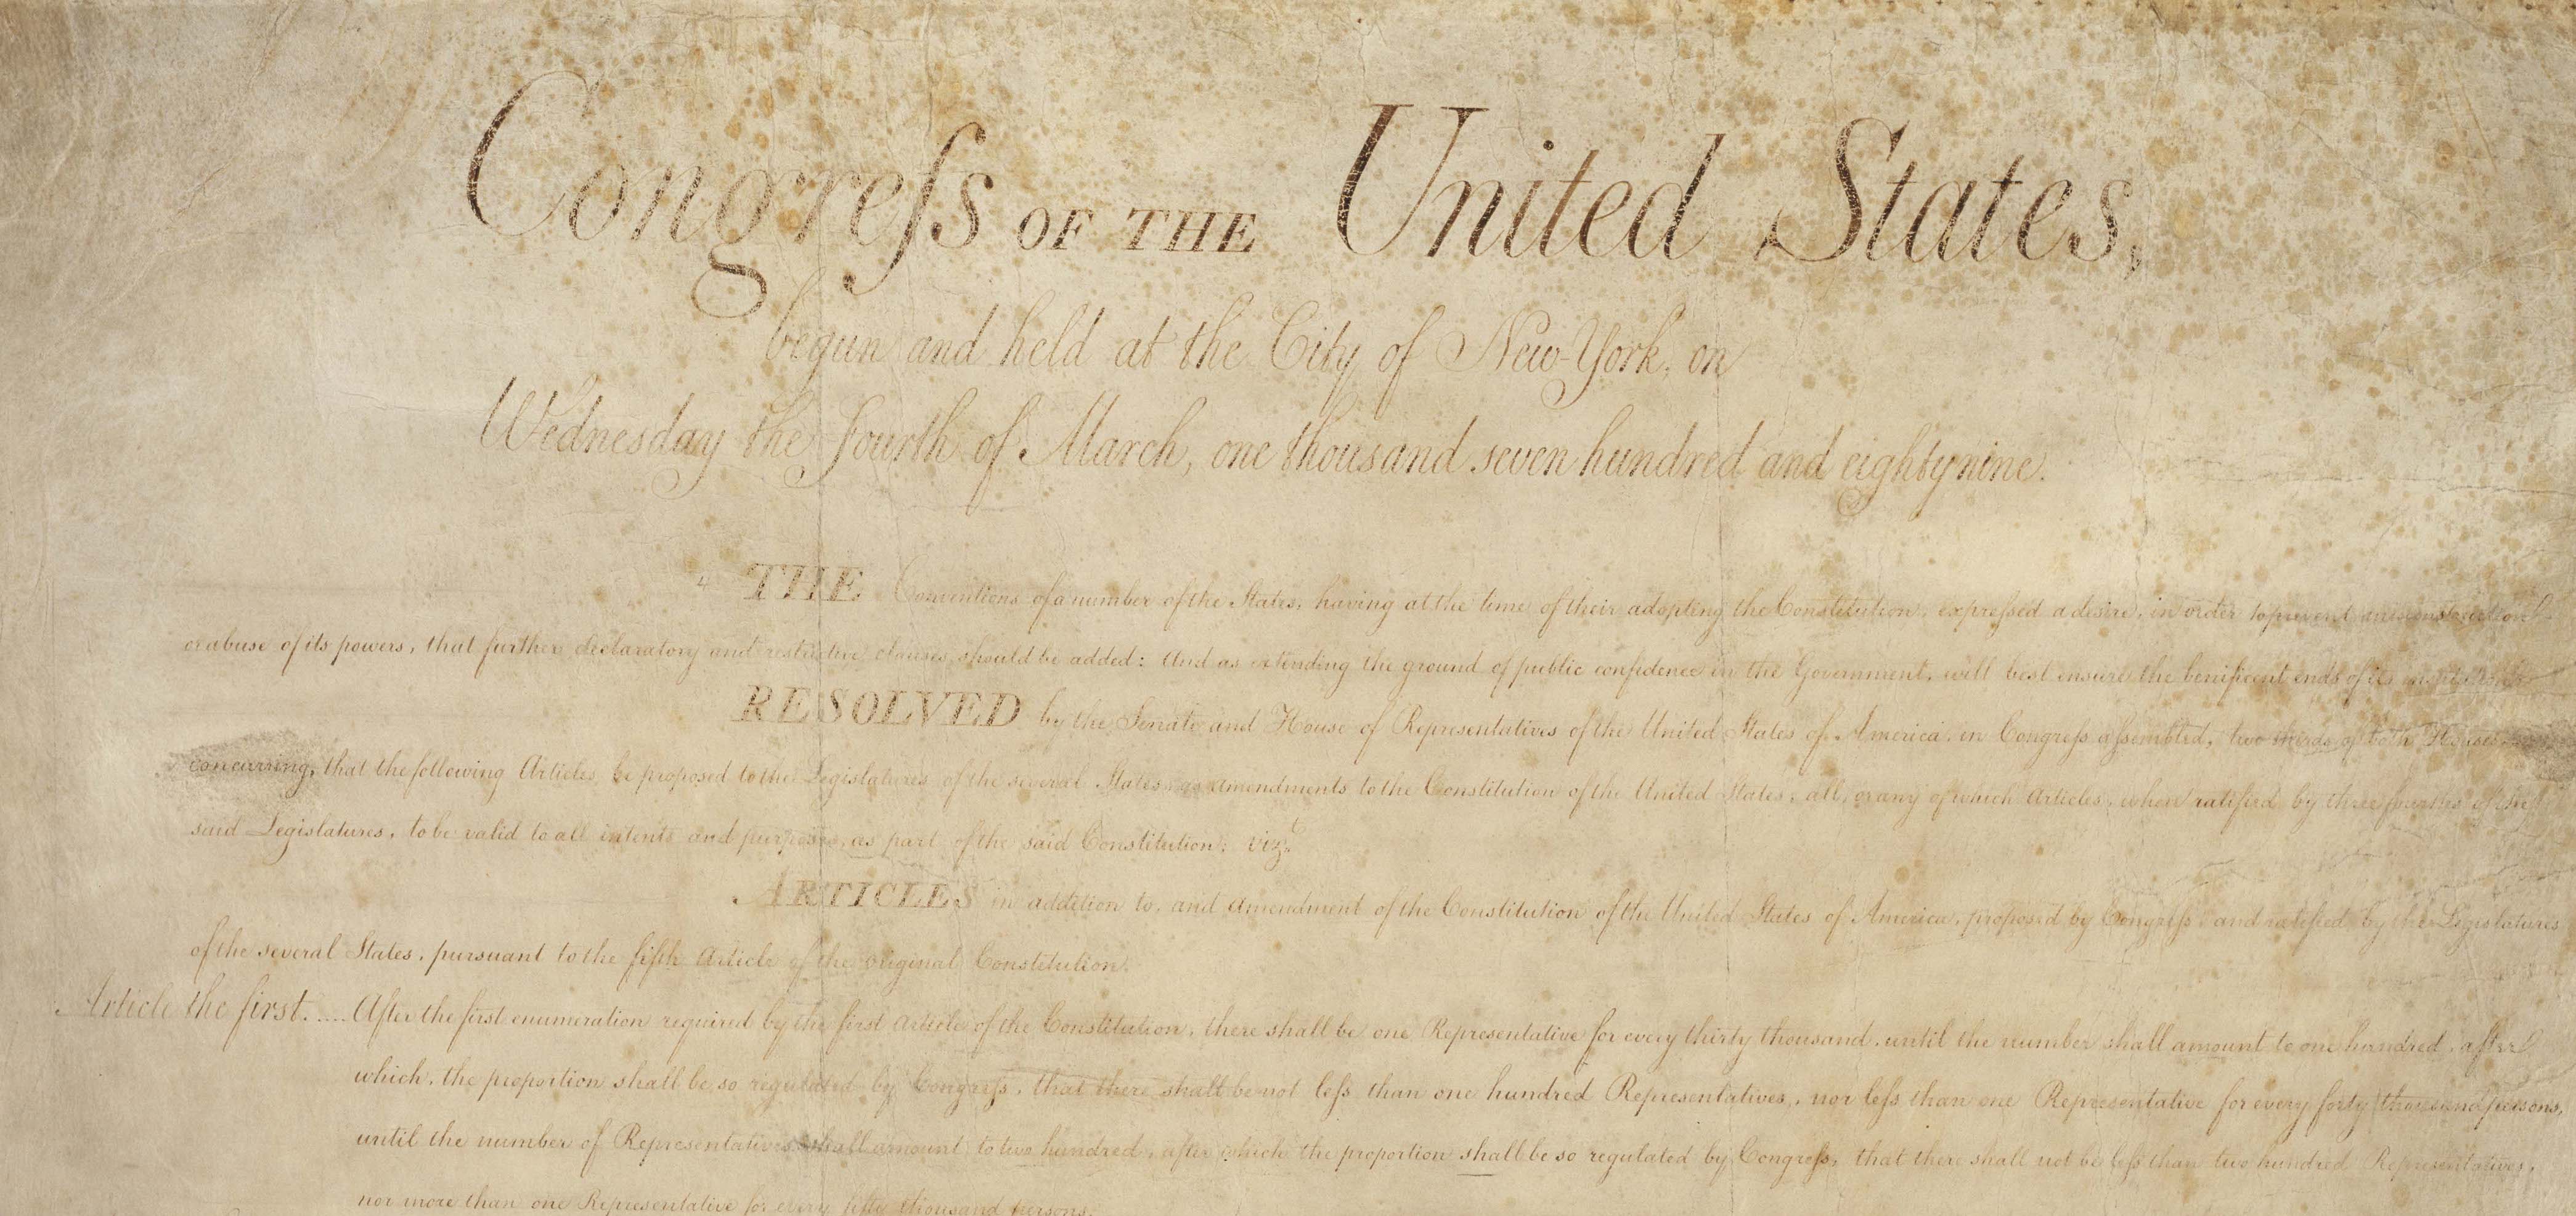 Congreſs OF THE United States,
begun and held at the City of New-York, on
Wednesday the fourth of March, one thousand seven hundred and eighty nine.
THE Conventions of a number of the States, having at the time of their adopting the Constitution, expreſsed a desire, in order to prevent misconstruction
or abuse of its powers, that further declaratory and restrictive clauses should be added: And as extending the ground of public confidence in the Government, will best ensure the benificent ends of its
RESOLVED by the Senate and House of Representatives of the United States of America, in Congreſs aſsembled, two thirds of both Houses
concurring, that the following Articles be proposed to the Legislatures of the several States, as amendments to the Constitution of the United States, all, or any of which Articles, when ratified by three fourths of the
said Legislatures, to be valid to all intents and purposes, as part of the said Constitution; vizt.
ARTICLES in addition to, and amendment of the Constitution of the United States of America, proposed by Congreſs, and ratified by the Legislatures
of the several States, pursuant to the fifth Article of the original Constitution.
Article the first..... After the first enumeration required by the first Article of the Constitution, there shall be one Representative for every thirty thousand, until the number shall amount to one hundred, after
which, the proportion shall be so regulated by Congreſs, that there shall be not leſs than one hundred Representatives, nor leſs than one Representative for every forty thousand persons,
until the number of Representatives shall amount to two hundred, after which the proportion shall be so regulated by Congreſs, that there shall not be leſs than two hundred Representatives,
nor more than one Representative for every fifty thousand persons.